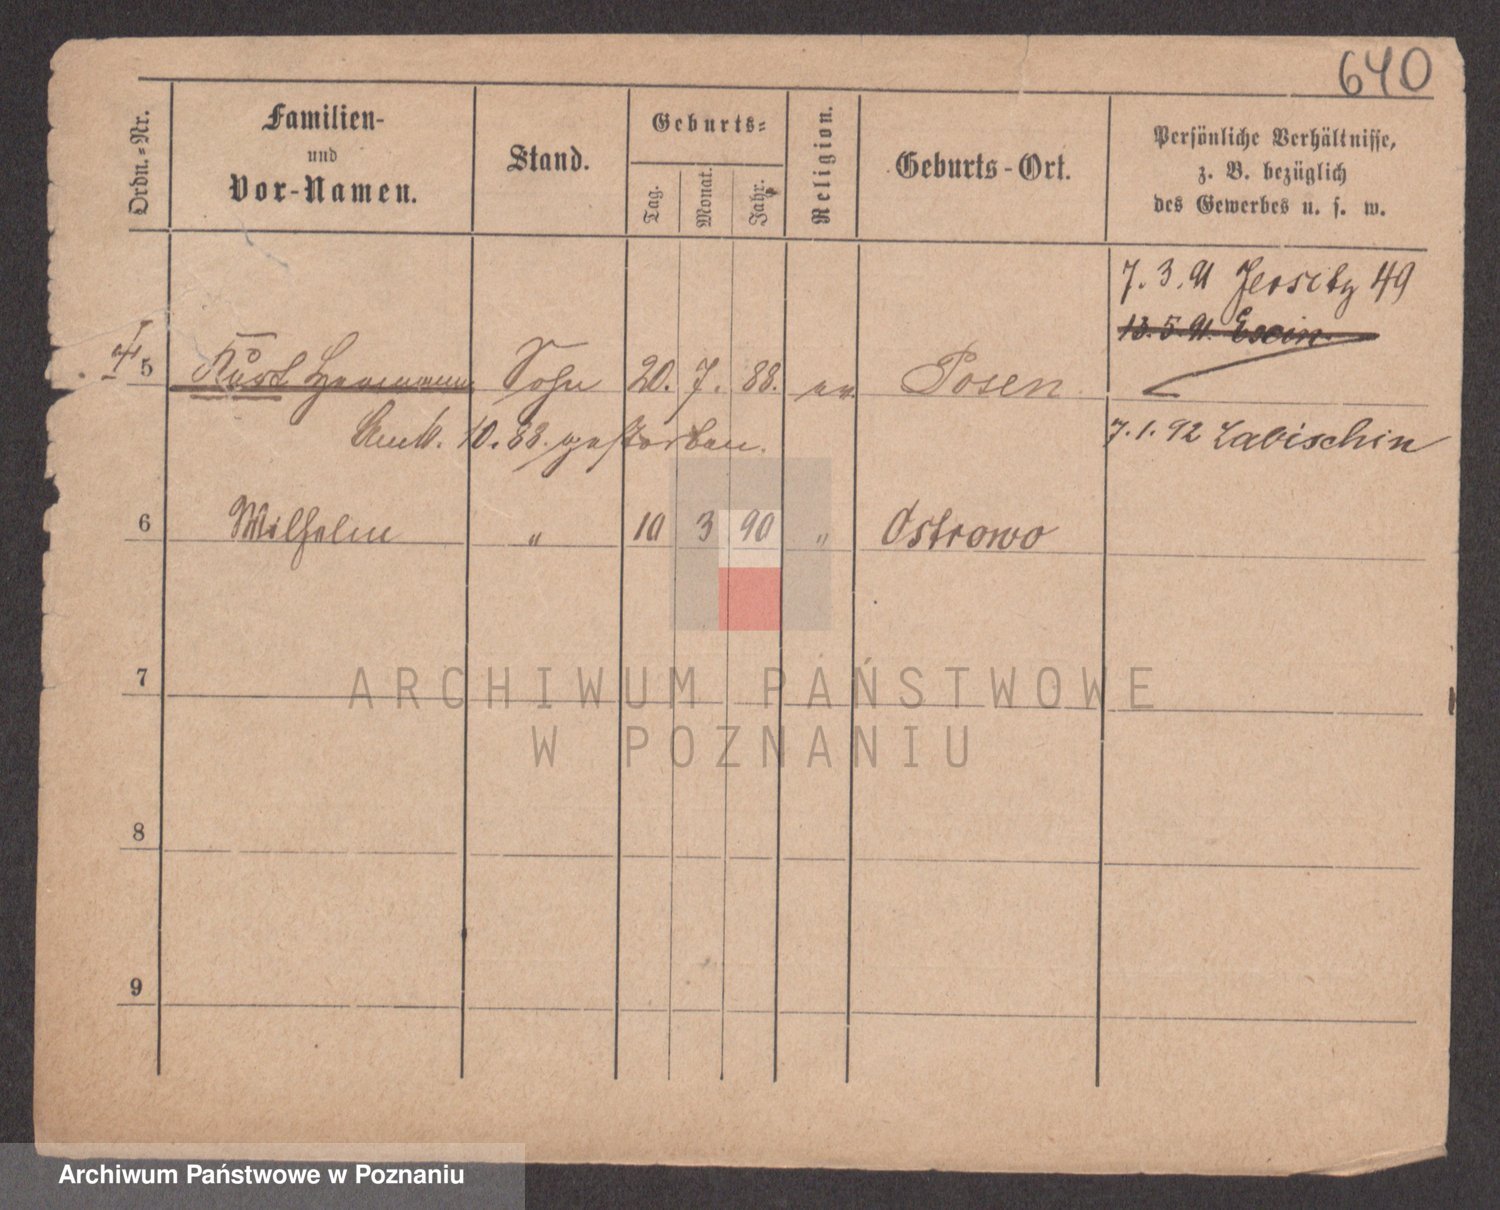 640
Ordn.-Nr.
Familien-
und
Vor-Namen.
Stand.
Geburts-
Tag.
Monat.
Jahr.
Religion.
Geburts-Ort.
Persönliche Verhältnisse,
z. B. bezüglich
des Gewerbes u. s. w.
7. 3. 91 Jersitz 49
13. 5. 91. Exin
5 Kurt Hermann Sohn 20. 7. 88. ev. Posen
10. 88. gestorben.
7. 1. 92 Labischin
6 Wilhelm " 10 3 90 " Ostrowo
7
ARCHIWUM PAŃSTWOWE
W POZNANIU
8
9
Archiwum Państwowe w Poznaniu